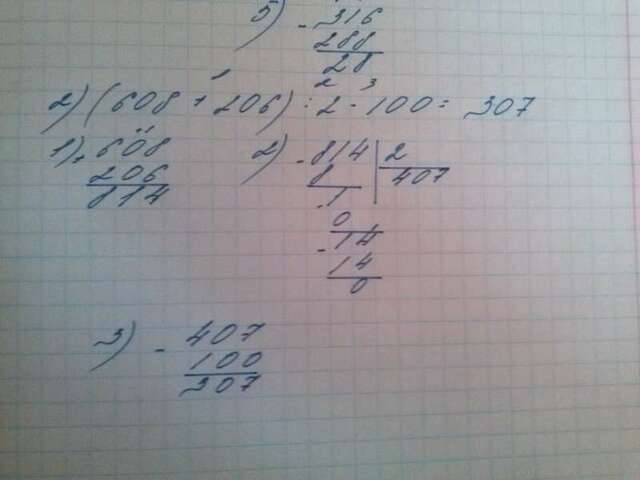 5) - 316
288
28
1 2 3
2) (608 + 206) : 2 - 100 = 307
1) + 608
206
814
2) - 814 | 2
8 407
- 1
0
- 14
14
0
3) - 407
100
307